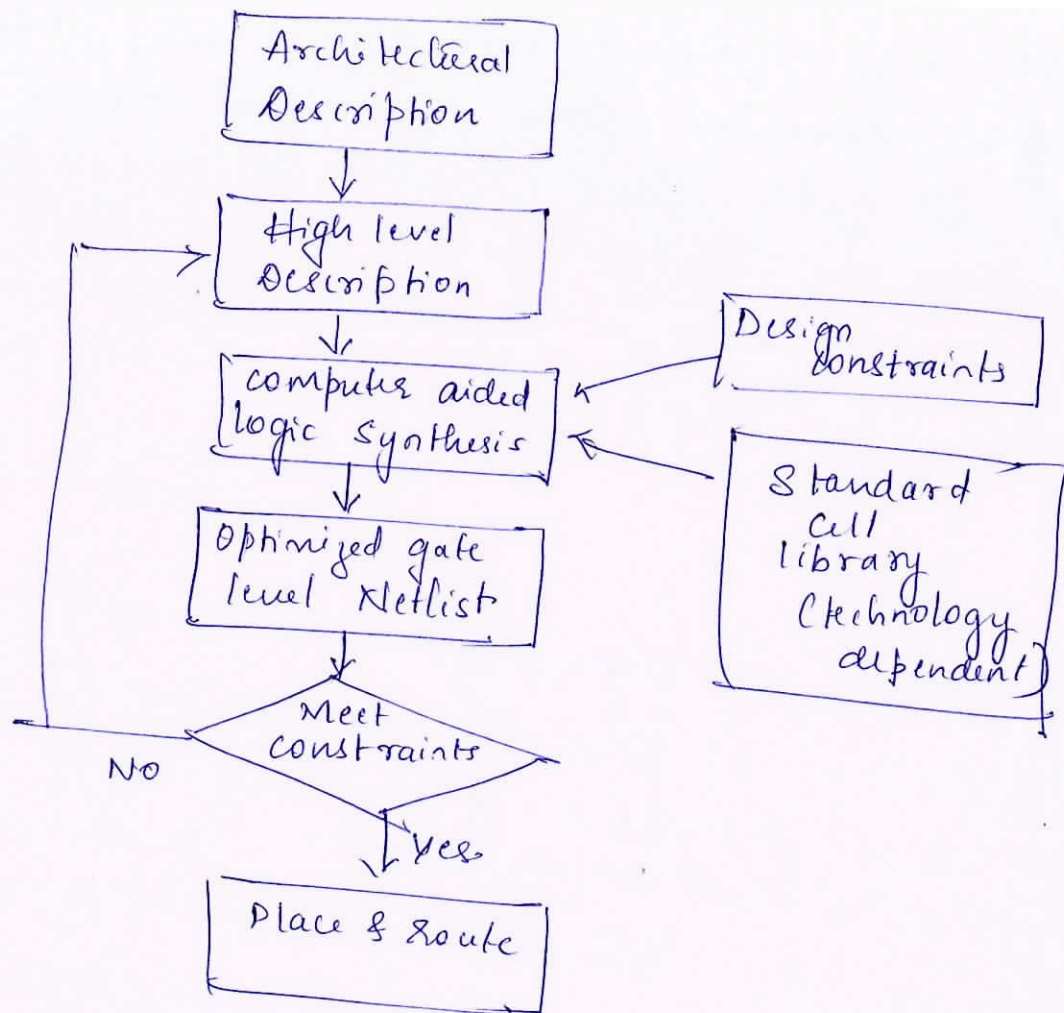 Architectural
Description
High level
Description
computer aided
logic synthesis
Design
constraints
Standard
Cell
library
(technology
dependent)
Optimized gate
level Netlist
Meet
constraints
NO
Yes
Place & Route